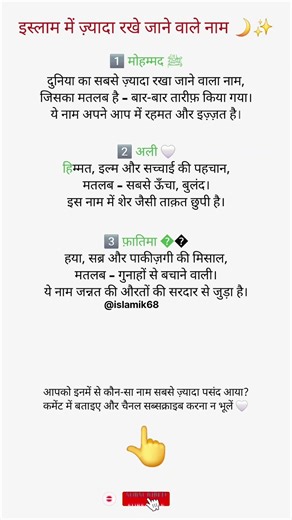 इस्लाम में ज़्यादा रखे जाने वाले नाम 🌙✨
1️⃣ मोहम्मद ﷺ
दुनिया का सबसे ज़्यादा रखा जाने वाला नाम,
जिसका मतलब है – बार-बार तारीफ़ किया गया।
ये नाम अपने आप में रहमत और इज़्ज़त है।
2️⃣ अली 🤍
हिम्मत, इल्म और सच्चाई की पहचान,
मतलब – सबसे ऊँचा, बुलंद।
इस नाम में शेर जैसी ताक़त छुपी है।
3️⃣ फ़ातिमा ��
हया, सब्र और पाकीज़गी की मिसाल,
मतलब – गुनाहों से बचाने वाली।
ये नाम जन्नत की औरतों की सरदार से जुड़ा है।
@islamik68
आपको इनमें से कौन-सा नाम सबसे ज़्यादा पसंद आया?
कमेंट में बताइए और चैनल सब्सक्राइब करना न भूलें 🤍